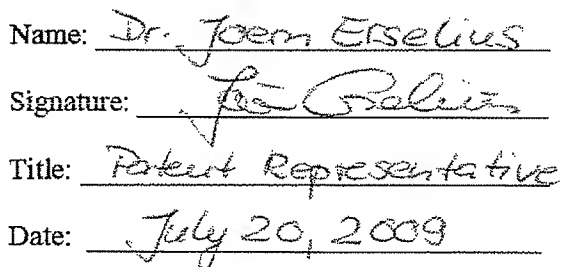 Name: Dr. Joern Erselius
Signature: Jörn Erselius
Title: Patent Representative
Date: July 20, 2009